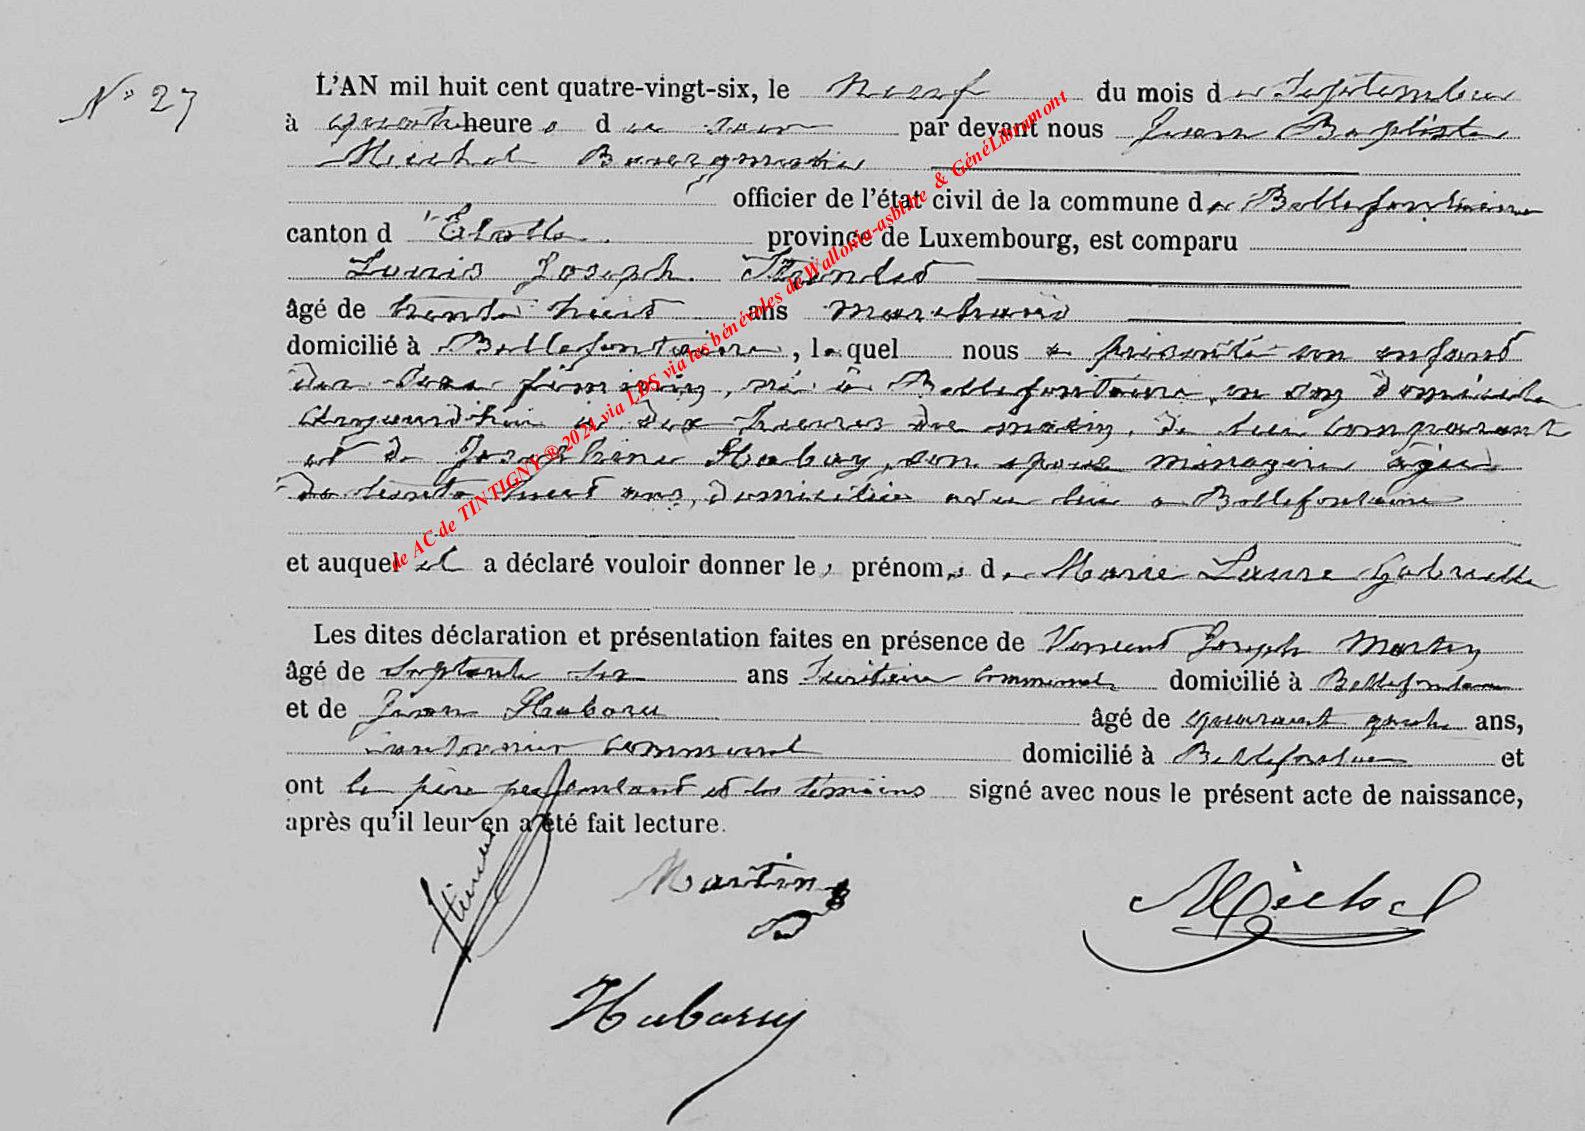 N° 27
L'AN mil huit cent quatre-vingt-six, le neuf du mois de Septembre
à quatre heures du soir par devant nous Jean Baptiste
Michel Bourgmestre
officier de l'état civil de la commune de Bellefontaine
canton d'Etalle province de Luxembourg, est comparu
Louis Joseph
âgé de trente huit ans marchand
domicilié à Bellefontaine, lequel nous a présenté un enfant
du sexe féminin, né à Bellefontaine, en son domicile
aujourd'hui à deux heures du matin, de lui comparant
et de Joséphine Habay, son épouse ménagère âgée
de trente huit ans, domiciliée avec lui à Bellefontaine
et auquel il a déclaré vouloir donner les prénoms de Marie Laure Gabrielle
Les dites déclaration et présentation faites en présence de Vincent Joseph Martin
âgé de septante six ans Secrétaire communal domicilié à Bellefontaine
et de Jean âgé de quarante quatre ans,
cantonnier communal domicilié à Bellefontaine et
ont le père et les témoins signé avec nous le présent acte de naissance,
après qu'il leur en a été fait lecture.
Martin
Michel
de AC de TINTIGNY ® 2024 via LDS via les bénévoles de Wallonia-asbl.be & GénéLibramont